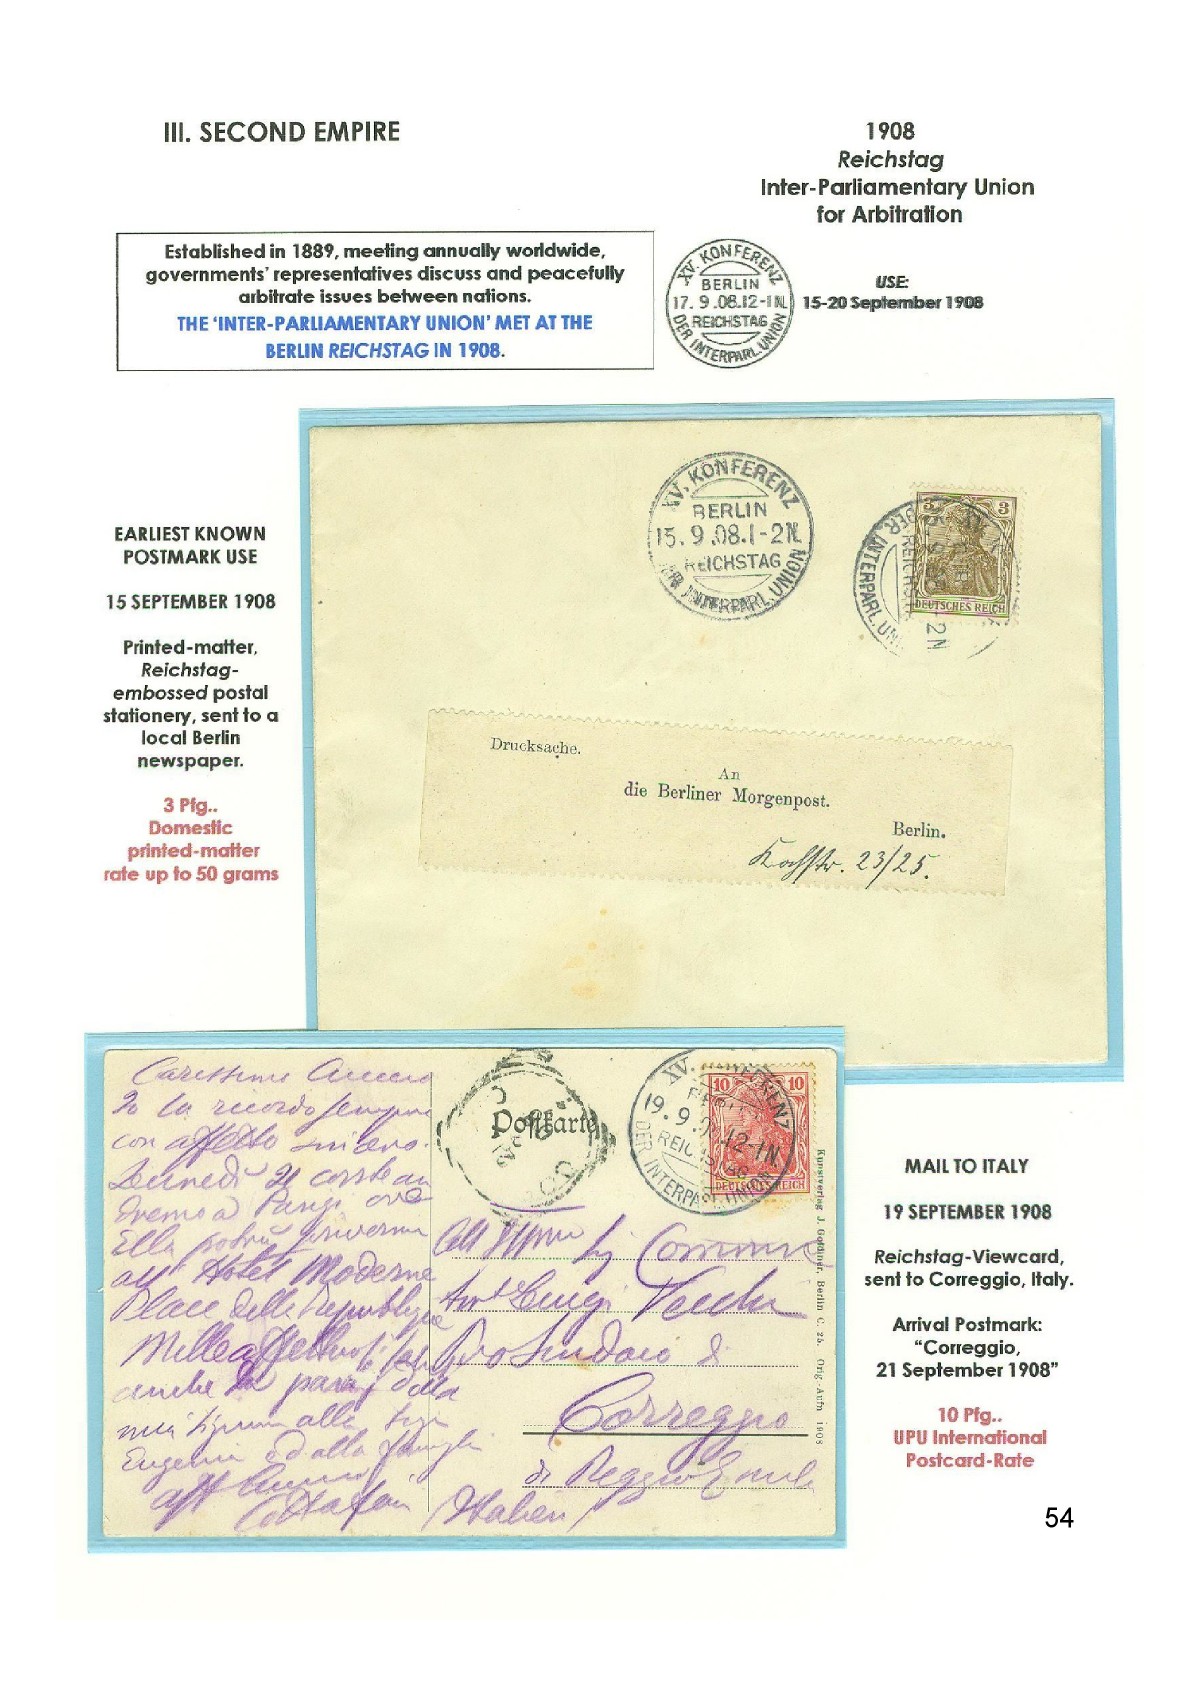 III. SECOND EMPIRE
1908
Reichstag
Inter-Parliamentary Union
for Arbitration
Established in 1889, meeting annually worldwide,
governments' representatives discuss and peacefully
arbitrate issues between nations.
THE 'INTER-PARLIAMENTARY UNION' MET AT THE
BERLIN REICHSTAG IN 1908.
XV. KONFERENZ
BERLIN
17. 9 .08.12-1N.
REICHSTAG
DER INTERPARL.UNION
USE:
15-20 September 1908
EARLIEST KNOWN
POSTMARK USE
15 SEPTEMBER 1908
Printed-matter,
Reichstag-
embossed postal
stationery, sent to a
local Berlin
newspaper.
3 Pfg..
Domestic
printed-matter
rate up to 50 grams
XV. KONFERENZ
BERLIN
15. 9 .08.1-2N.
REICHSTAG
DER INTERPARL.UNION
3 3
DEUTSCHES REICH
DER INTERPARL.UN
-2N
Drucksache.
An
die Berliner Morgenpost.
Berlin.
Kochstr. 23/25.
Carissimo
Io la ricordo sempre
con affetto sincero.
Lunedì 21
a Parigi ove
Ella potrà
all' Hotel Moderne
Place della Republique
Mille
anche
mia Signora alla
Eugenia ed alla famiglia
Postkarte
XV. KONFERENZ
19. 9. 12-1N
REICHSTAG
DER INTERPARL.UNION
10 10
DEUTSCHES REICH
Comm
Luigi
Pro Sindaco di
Correggio
di Reggio Emilia
Italien
Kunstverlag J. Goldiner, Berlin C. 25. Orig.-Aufn 1908
MAIL TO ITALY
19 SEPTEMBER 1908
Reichstag-Viewcard,
sent to Correggio, Italy.
Arrival Postmark:
"Correggio,
21 September 1908"
10 Pfg..
UPU International
Postcard-Rate
54